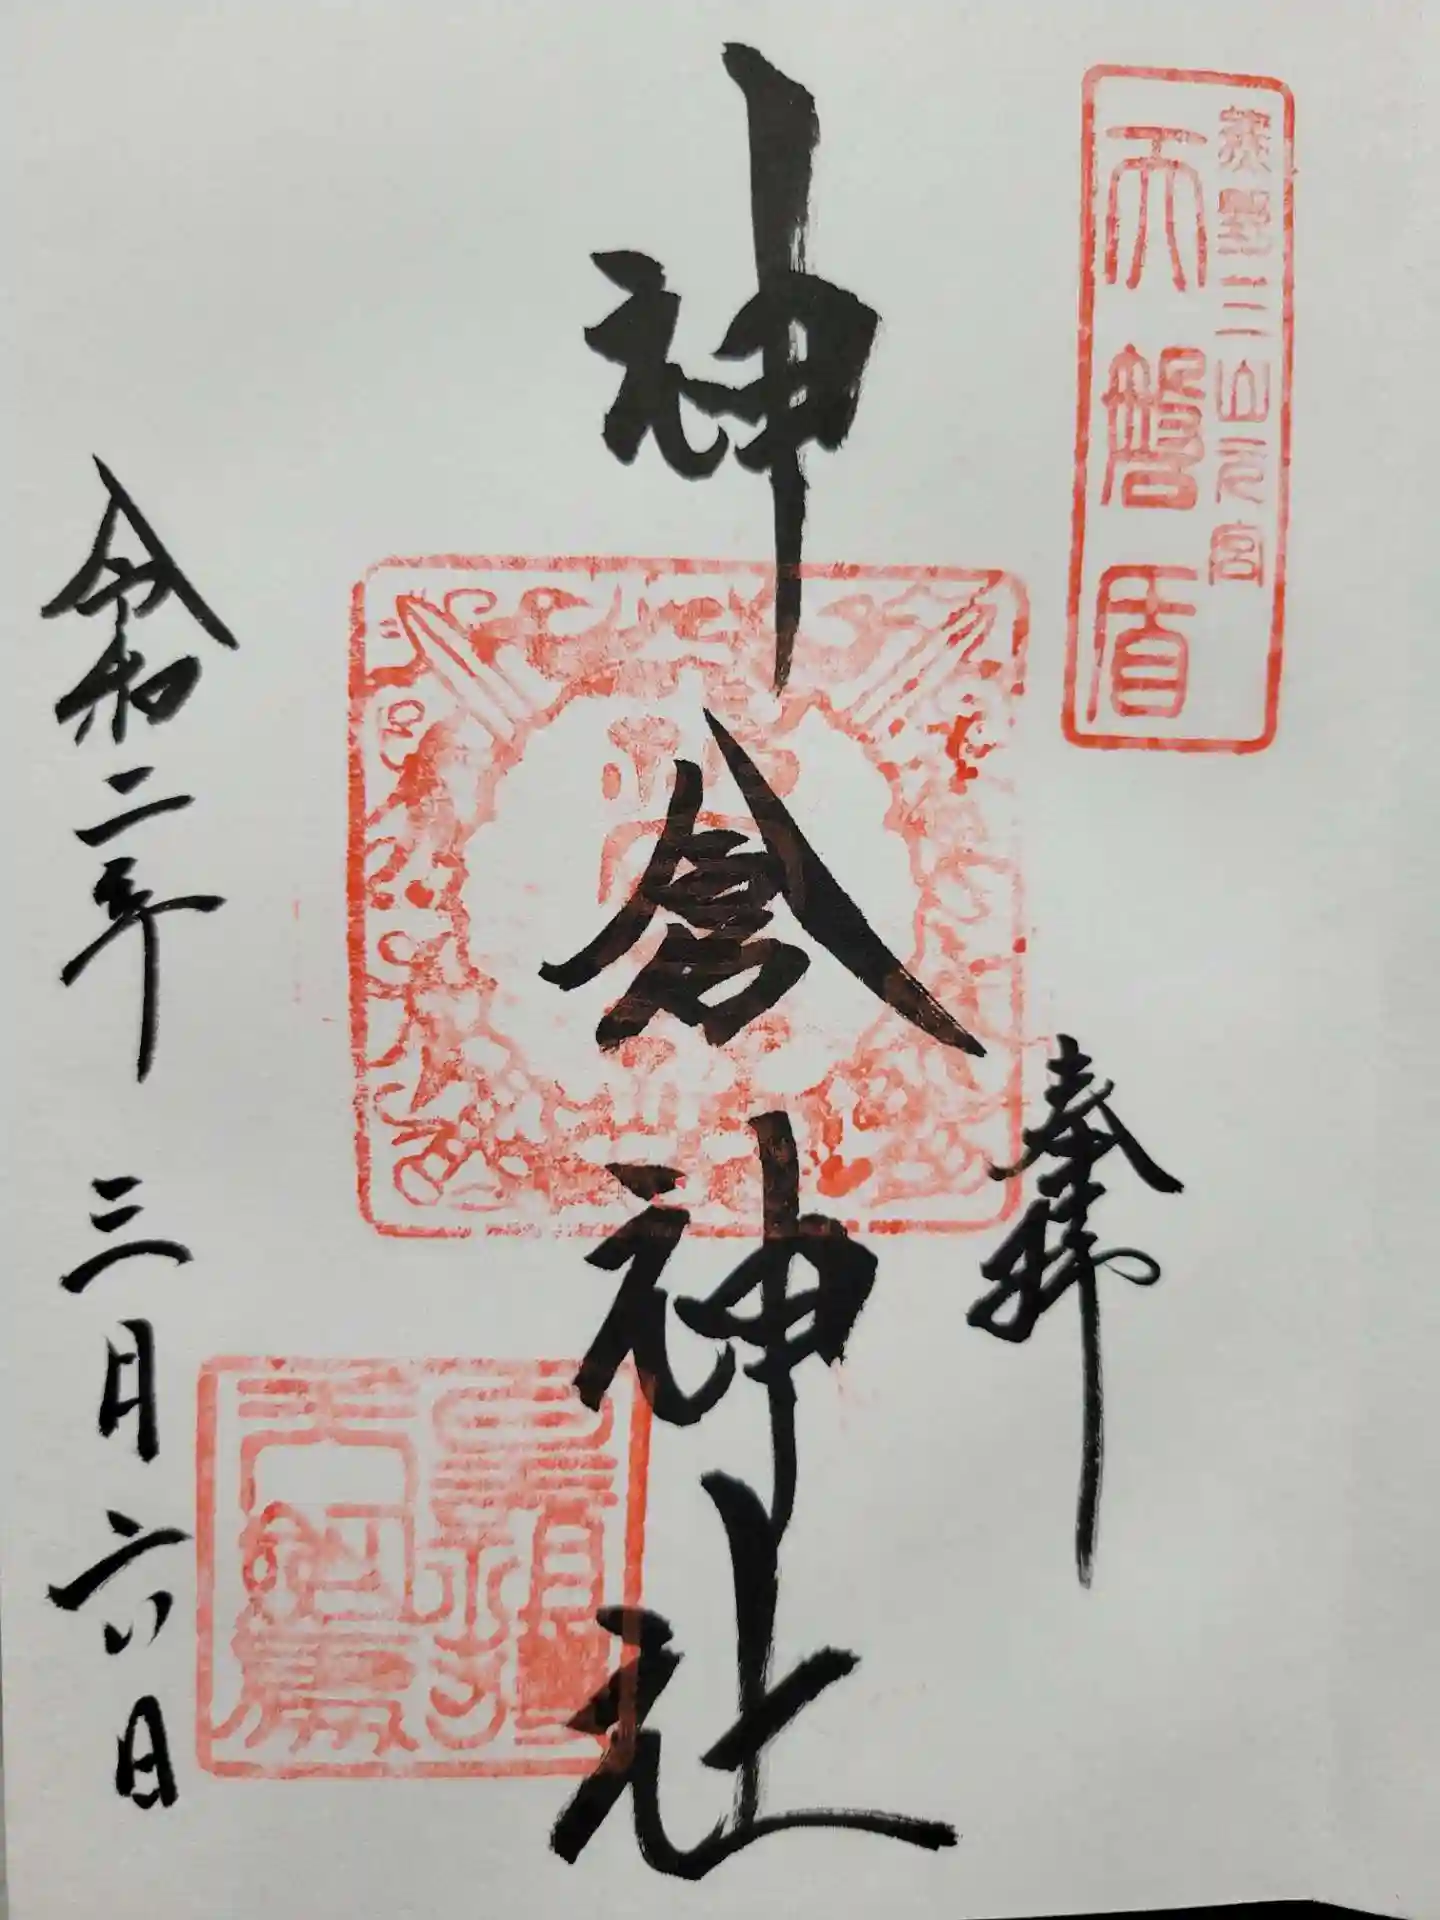 熊野三山元宮
天磐盾
奉拝
神倉神社
令和二年 三月六日